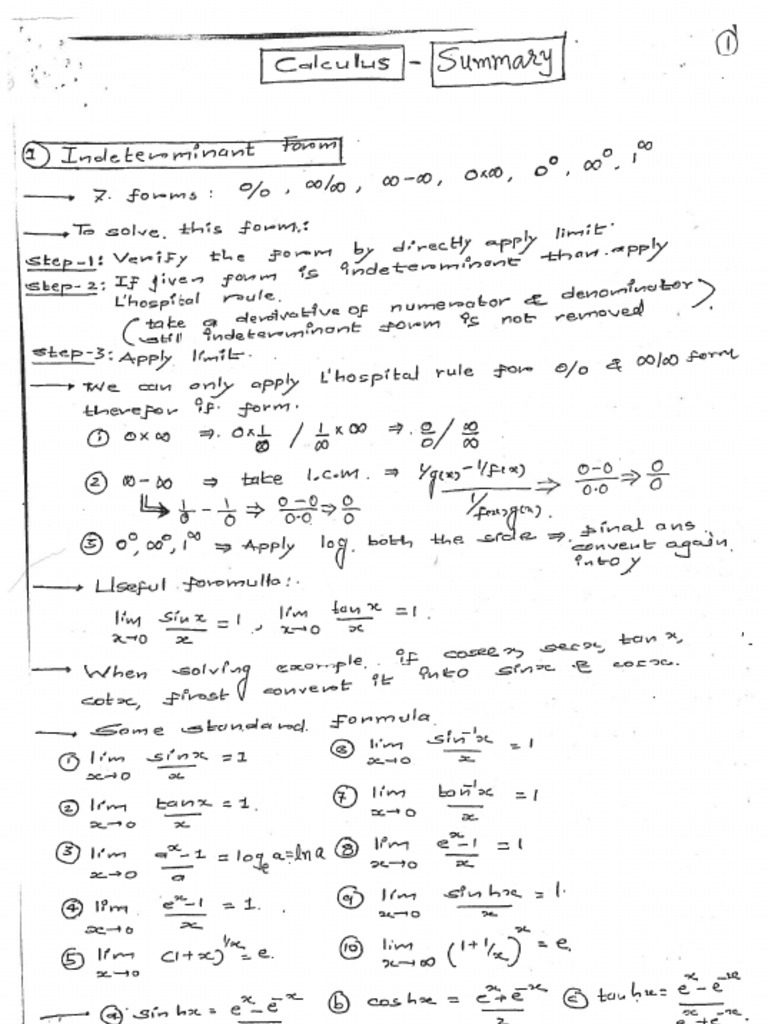 1
Calculus - Summary
① Indeterminant Form
→ 7. forms: 0/0, ∞/∞, ∞-∞, 0×∞, 0⁰, ∞⁰, 1^∞
→ To solve this form:
Step-1: Verify the form by directly apply limit.
Step-2: If given form is indeterminant than apply
L'hospital rule.
(take a derivative of numerator & denominator
still indeterminant form is not removed.)
Step-3: Apply limit.
→ We can only apply L'hospital rule for 0/0 & ∞/∞ form
therefor if form.
① 0×∞ ⇒ 0×1/∞ / 1/∞×∞ ⇒ 0/0 / ∞/∞
② ∞-∞ ⇒ take L.C.M. ⇒ (1/g(x) - 1/f(x)) / (1/f(x)g(x)) ⇒ (0-0)/(0.0) ⇒ 0/0
↳ 1/0 - 1/0 ⇒ (0-0)/(0.0) ⇒ 0/0
③ 0⁰, ∞⁰, 1^∞ ⇒ Apply log both the side ⇒ final ans.
convert again
into y
→ Useful foromulla:
lim x→0 sinx/x = 1, lim x→0 tanx/x = 1.
→ When solving example. if cosecx, secx, tanx,
cotx, first convert it into sinx & cosx.
→ Some standard formula
① lim x→0 sinx/x = 1
⑥ lim x→0 sin⁻¹x/x = 1
② lim x→0 tanx/x = 1.
⑦ lim x→0 tan⁻¹x/x = 1
③ lim x→0 (a^x-1)/a = log_e a = ln a
⑧ lim x→0 (e^x-1)/x = 1
④ lim x→0 (e^x-1)/x = 1.
⑨ lim x→0 sinhx/x = 1.
⑤ lim x→0 (1+x)^(1/x) = e.
⑩ lim x→∞ (1+1/x)^x = e.
→ ⓐ sinhx = (e^x - e^-x)
ⓑ coshx = (e^x + e^-x)/2
ⓒ tanhx = (e^x - e^-x)/(e^x + e^-x)